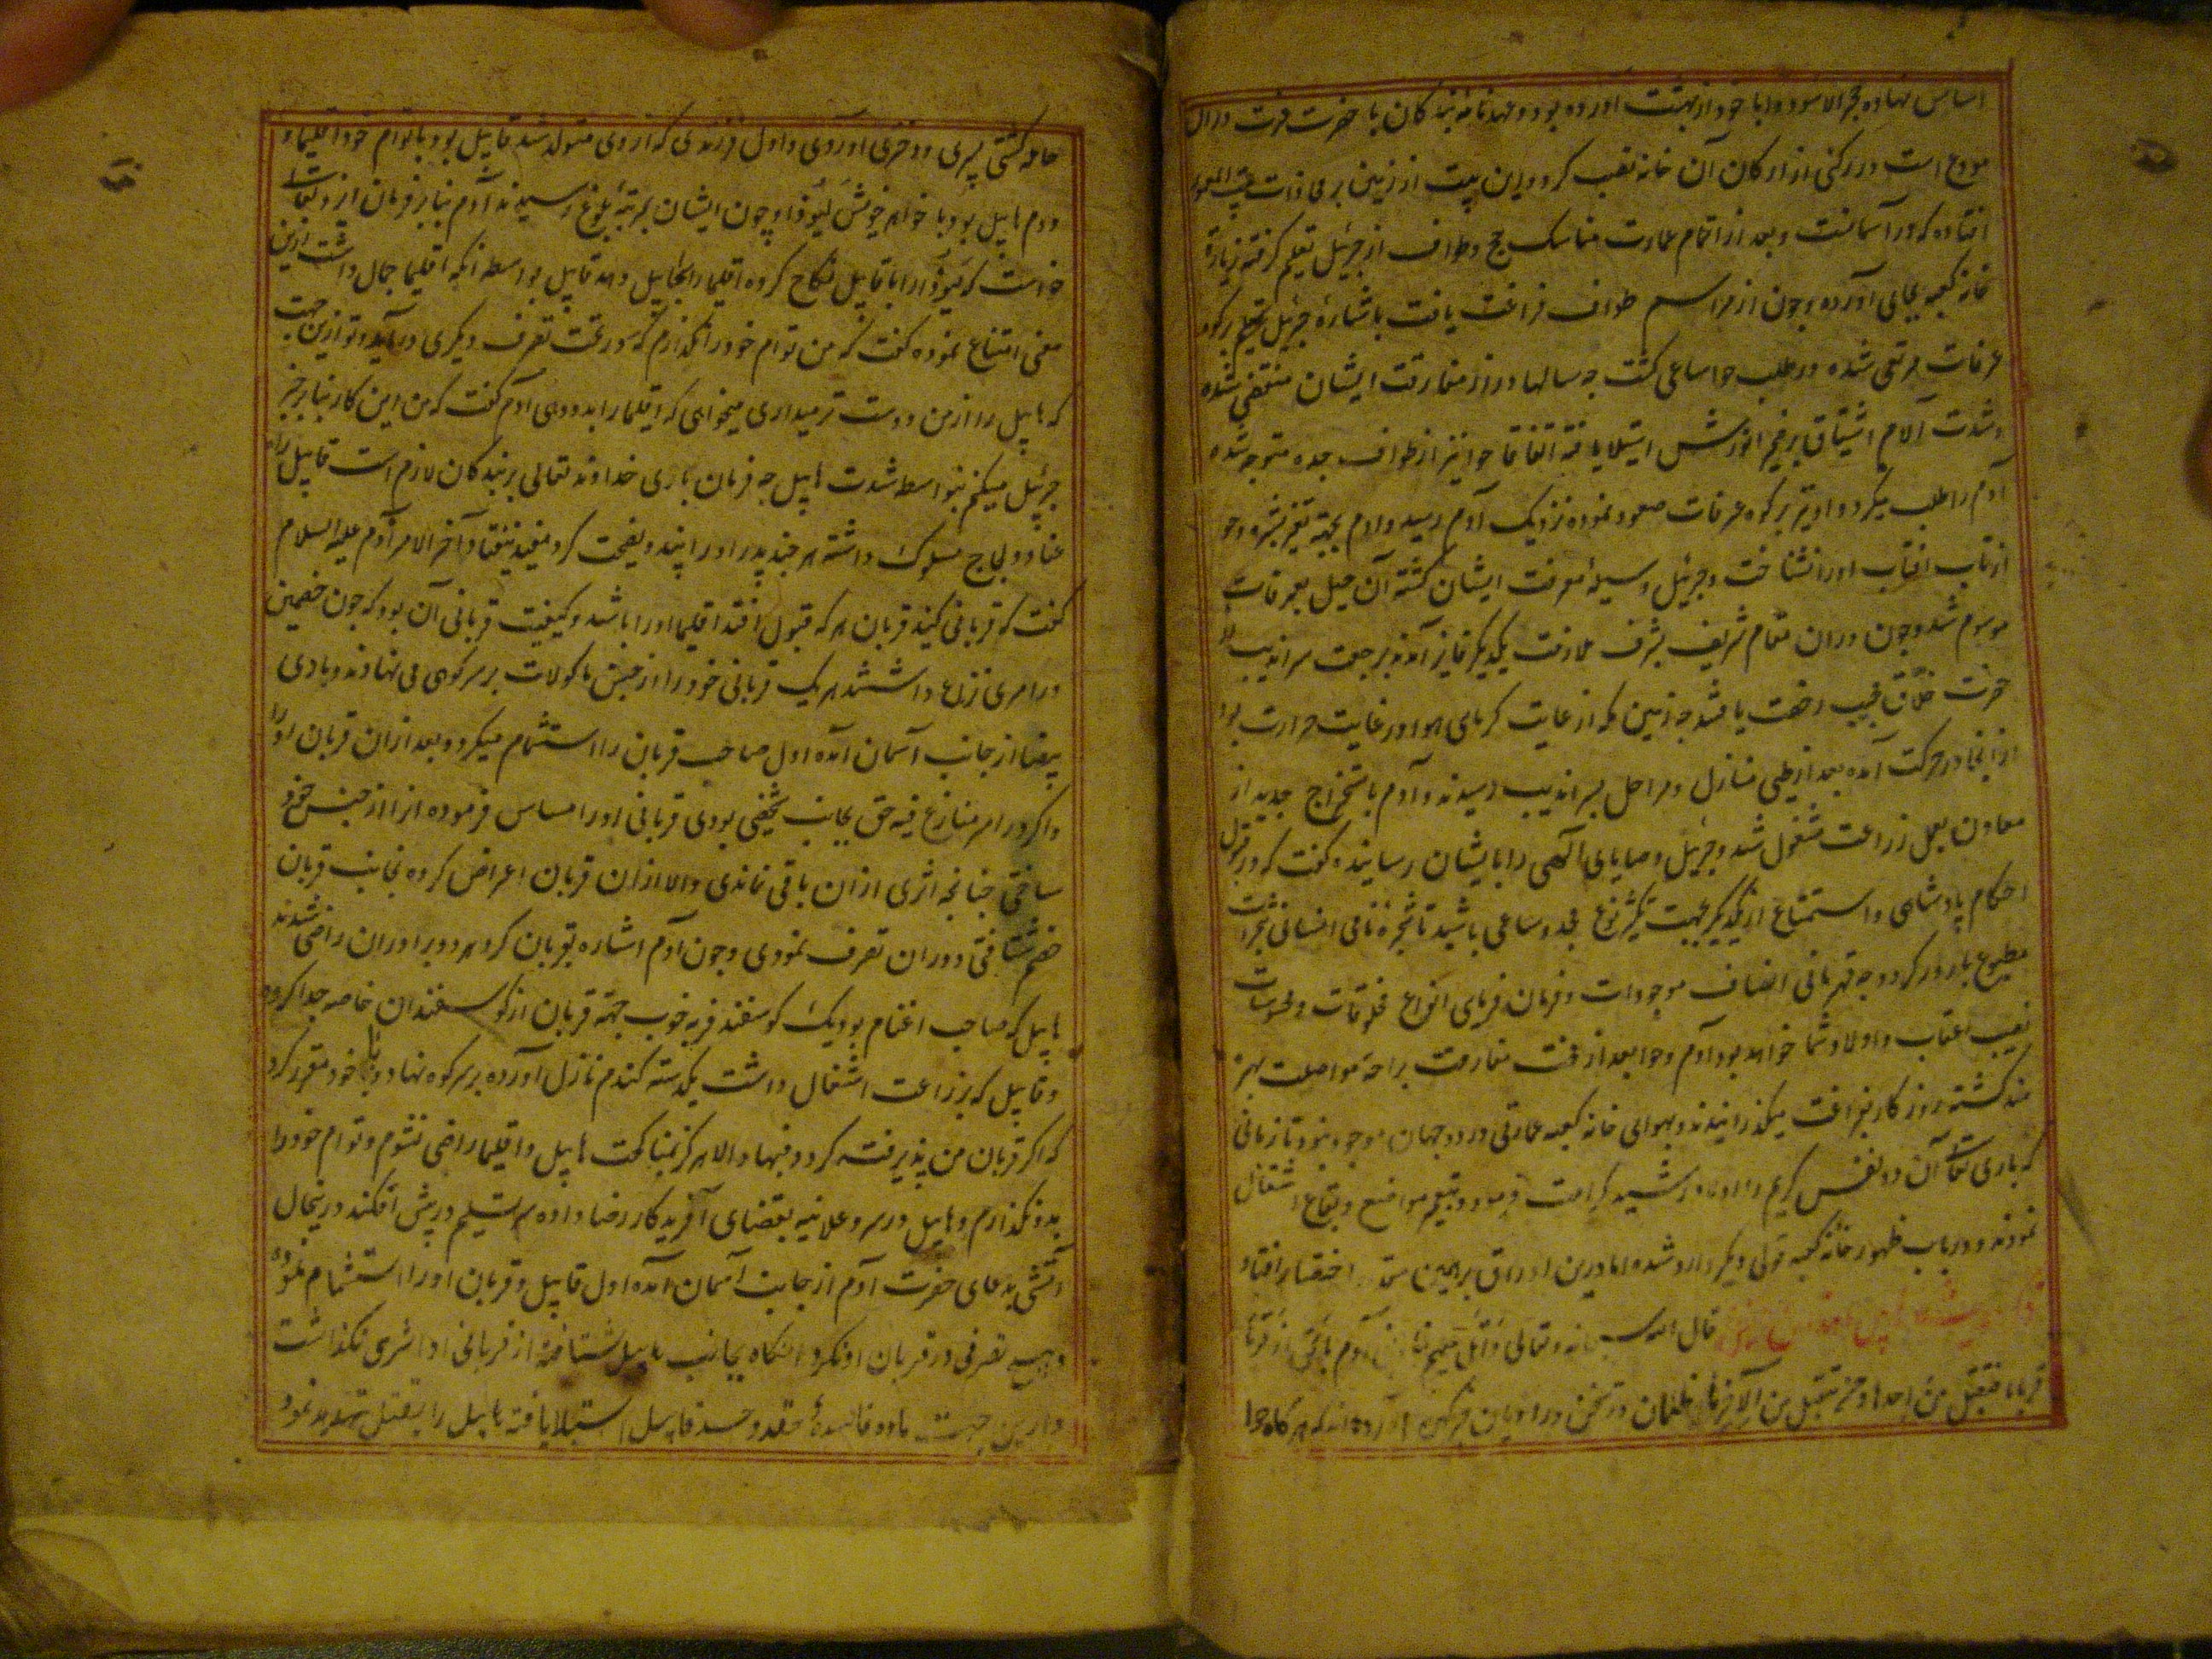 اساس نهاده حجر الاسود را با خود از بهشت آورده بود و عهدنامه بندگان با حضرت عزت در آن
مودع است در رکنی از ارکان آن خانه نصب کرد و این بیت از زمین بر محاذات بیت المعمور
افتاده که در آسمانست و بعد از اتمام عمارت مناسک حج و طواف از جبرئیل تعلیم گرفته زیارة
خانه کعبه بجای آورده و چون از مراسم طواف فراغت یافت باشارهٔ جبرئیل بکوه
عرفات مرتقی شده در طلب حوا ساعی گشت چه سالها در از مفارقت ایشان منقضی شده
و شدت آلام اشتیاق بر ضمیر انورش استیلا یافته اتفاقا حوا نیز از طواف جده متوجه شده
آدم را طلب میکرد و او نیز بر کوه عرفات صعود نموده نزدیک آدم رسید و آدم بجهة تغیر بشره حوا
از تاب افتاب او را نشناخت و جبرئیل وسیلهٔ معرفت ایشان گشته آن جبل بعرفات
موسوم شد و چون در ان مقام شریف بشرف ملاقات یکدیگر فایز آمدند بر جعت سراندیب از
حضرت خلاق مجیب رخصت یافتند چه زمین مکه از غایت گرمای هوا در غایت حرارت بود
از انجا در حرکت آمده بعد از طی منازل و مراحل بسراندیب رسیدند و آدم باستخراج حدید از
معادن بعمل زراعت مشغول شد و جبرئیل وصایای الهی را بایشان رسانیده گفت که در قبول
احکام پادشاهی و استمتاع از یکدیگر بجهت تکثر نوع مجد و ساعی باشید تا شجره نامی انسانی بثمرات
مطبوع بارور گردد چه قهرمانی اصناف موجودات و فرمان فرمای انواع مخلوقات و محسوسات
نصیب اعقاب و اولاد شما خواهد بود آدم و حوا بعد از محنت مفارقت براحة مواصلت بهره
مند گشته روزگار بفراغت میگذرانیدند و بهوای خانه کعبه عمارتی در دو جهان موجود نبود تا زمانی
که باری تعالی آن دو نفس کریم را اولاد رشید کرامت فرمود و بتعمیر مواضع و بقاع اشتغال
نمودند و در باب ظهور خانه کعبه قولی دیگر وارد شده اما درین اوراق بر همین اختصار افتاد
قال الله سبحانه و تعالی وَاتْلُ علیهم نبأ ابنی آدم بالحق اذ قربا
قربانا فتقبل من احدهما و لم یتقبل من الآخر آورده اند که هرگاه حوا
حامله گشتی پسری و دختری آوردی و اول فرزندی که از وی متولد شد قابیل بود با توام خود اقلیما و
دوم هابیل بود با خواهر خویش لیوذا و چون ایشان بمرتبهٔ بلوغ رسیدند آدم بنابر فرمان ایزد تعالی
خواست که لیوذا را با قابیل نکاح کرده اقلیما را بهابیل دهد قابیل بواسطه آنکه اقلیما جمال داشت ازین
معنی امتناع نموده گفت که من توام خود را نگذارم که در تحت تصرف دیگری در آید و تو ازین جهت
که هابیل را از من دوست تر میداری میخواهی که اقلیما را بدو دهی آدم گفت که من این کار بنا بر خبر
جبرئیل میکنم نه بواسطه شدت هابیل چه فرمان باری خداوند تعالی بر بندگان لازم است قابیل راه
عناد و لجاج مسلوک داشته هر چند پدر او را پند و نصیحت کرد مفید نیفتاد آخر الامر آدم علیه السلام
گفت که قربانی کنید قربان هر که قبول افتد اقلیما او را باشد و کیفیت قربانی آن بود که چون خصمین
در امری نزاع داشتند هر یک قربانی خود را از جنس ماکولات بر سر کوهی می نهادند و بادی
بیضا از جانب آسمان آمده اول صاحب قربان را استشمام میکرد و بعد از ان قربان او را
و اگر در امر متنازع فیه حق بجانب شخصی بودی قربانی او را مساس فرموده انرا از جنس خود
ساختی چنانچه اثری از ان باقی نماندی و الا ازان قربان اعراض کرده بجانب قربان
خصم شتافتی و در ان تصرف نمودی و چون آدم اشاره بقربان کرد هر دو برادران راضی شدند
هابیل که صاحب اغنام بود یک گوسفند فربه خوب جهة قربان از گوسفندان خاصه جدا کرده
و قابیل که بزراعت اشتغال داشت یکدسته گندم نازل آورده بر سر کوه نهاد و با خود مقرر کرد
که اگر قربان من پذیرفته گردد فبها و الا هرگز بمناکحت هابیل و اقلیما راضی نشوم و توام خود را
بدو نگذارم و هابیل در سر و علانیه بقضای آفریدگار رضا داده سر تسلیم در پیش افکند در ینحال
آتشی بدعای حضرت آدم از جانب آسمان آمده اول قابیل و قربان او را استشمام نموده
و هیچ تصرفی در قربان او نکرد آنگاه بجانب هابیل شتافته از قربانی او اثری نگذاشت
و ازین جهت ماده فاسدهٔ حقد و حسد قابیل استیلا یافته هابیل را بقتل تهدید نمود